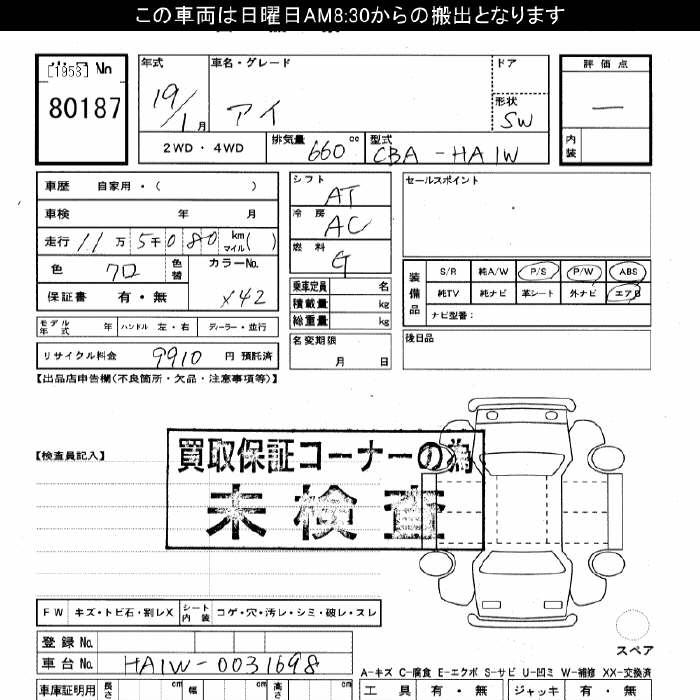 この車両は日曜日AM8:30からの搬出となります
[1953] No
80187
年式
19/1月
車名・グレード
アイ
ドア
形状
SW
評価点
—
内装
2WD ・ 4WD
排気量 660 cc
型式 CBA-HA1W
車歴 自家用・( )
車検 年 月
走行 11万5千080 km マイル( )
色 クロ 色替
カラーNo. X42
保証書 有・無
モデル年式 年 ハンドル 左・右 ディーラー・並行
リサイクル料金 9910 円 預託済
シフト AT
冷房 AC
燃料 G
乗車定員 名
積載量 kg
総重量 kg
名変期限
月 日
セールスポイント
装備品
S/R 純A/W P/S P/W ABS
純TV 純ナビ 革シート 外ナビ エアB
ナビ型番:
後日品
【出品店申告欄(不良箇所・欠品・注意事項等)】
【検査員記入】
買取保証コーナーの為
未検査
FW キズ・トビ石・割レX シート内装 コゲ・穴・汚レ・シミ・破レ・スレ
スペア
登録 No.
車台 No. HA1W-0031698
A-キズ C-腐食 E-エクボ S-サビ U-凹ミ W-補修 XX-交換済
車庫証明用 長さ cm 幅 cm 高さ cm
工具 有・無 ジャッキ 有・無